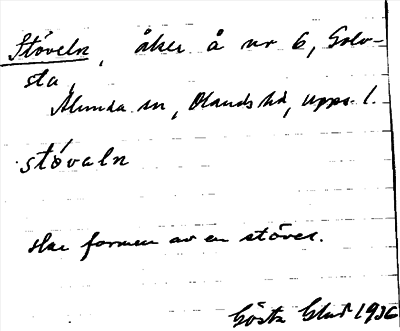 Stöveln, åker å nr 6, Golv-
sta,
Almunda sn, Olands hd, Upps. l.
stövaln
Har formen av en stövel.
Gösta 1936